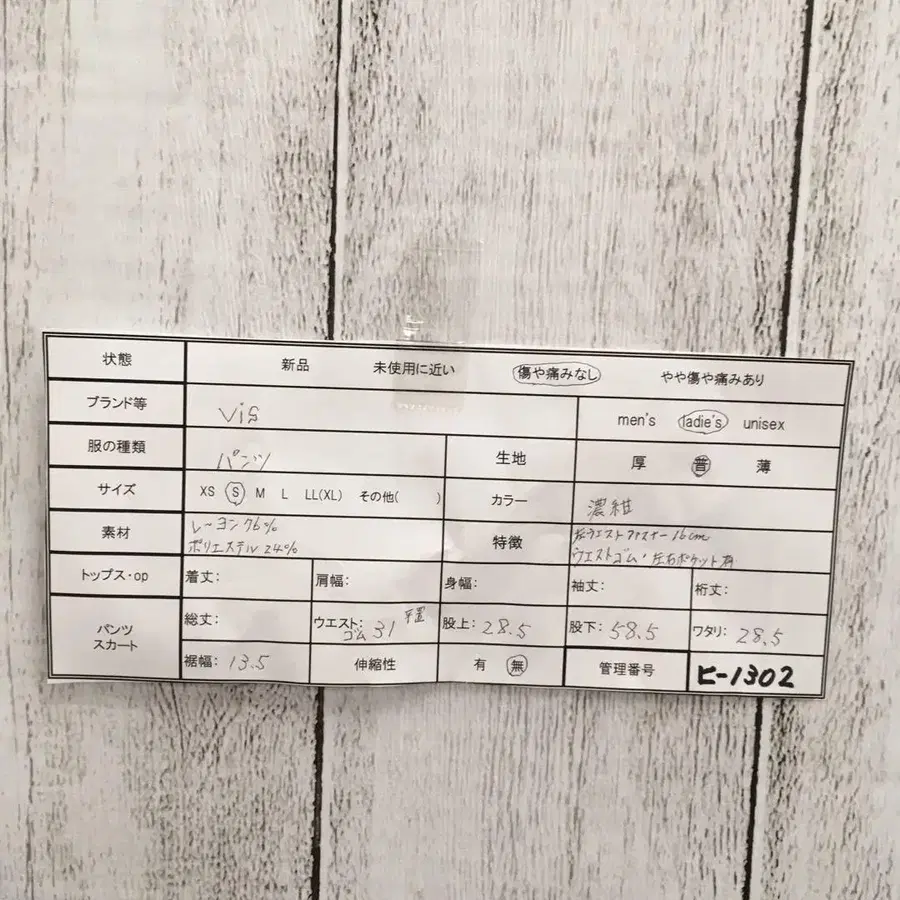 状態 新品 未使用に近い 傷や痛みなし やや傷や痛みあり
ブランド等 Vis men's ladie's unisex
服の種類 パンツ 生地 厚 普 薄
サイズ XS S M L LL(XL) その他( ) カラー 濃紺
素材 レーヨン76% 特徴 左ウエストファスナー16cm
ポリエステル24% ウエストゴム・左右ポケット有
トップス・op 着丈: 肩幅: 身幅: 袖丈: 裄丈:
パンツ スカート 総丈: ウエスト: ゴム 31 平置 股上: 28.5 股下: 58.5 ワタリ: 28.5
裾幅: 13.5 伸縮性 有 無 管理番号 ヒ-1302